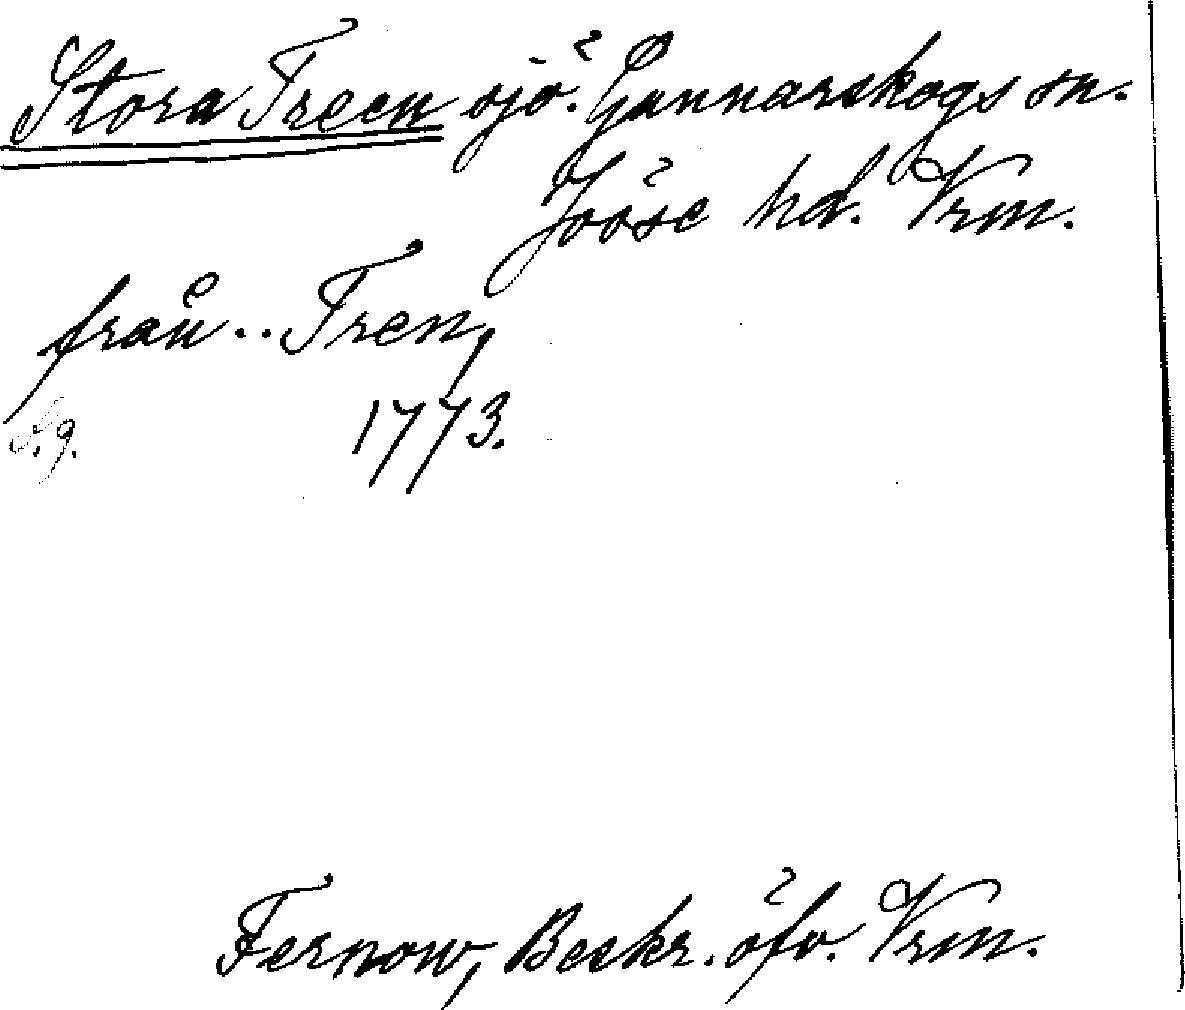 Stora Treen sjö. Gunnarskogs sn.
Jösse hd. Vrm.
från .. Tren,
1773.
Fernow, Beskr. öfv. Vrm.